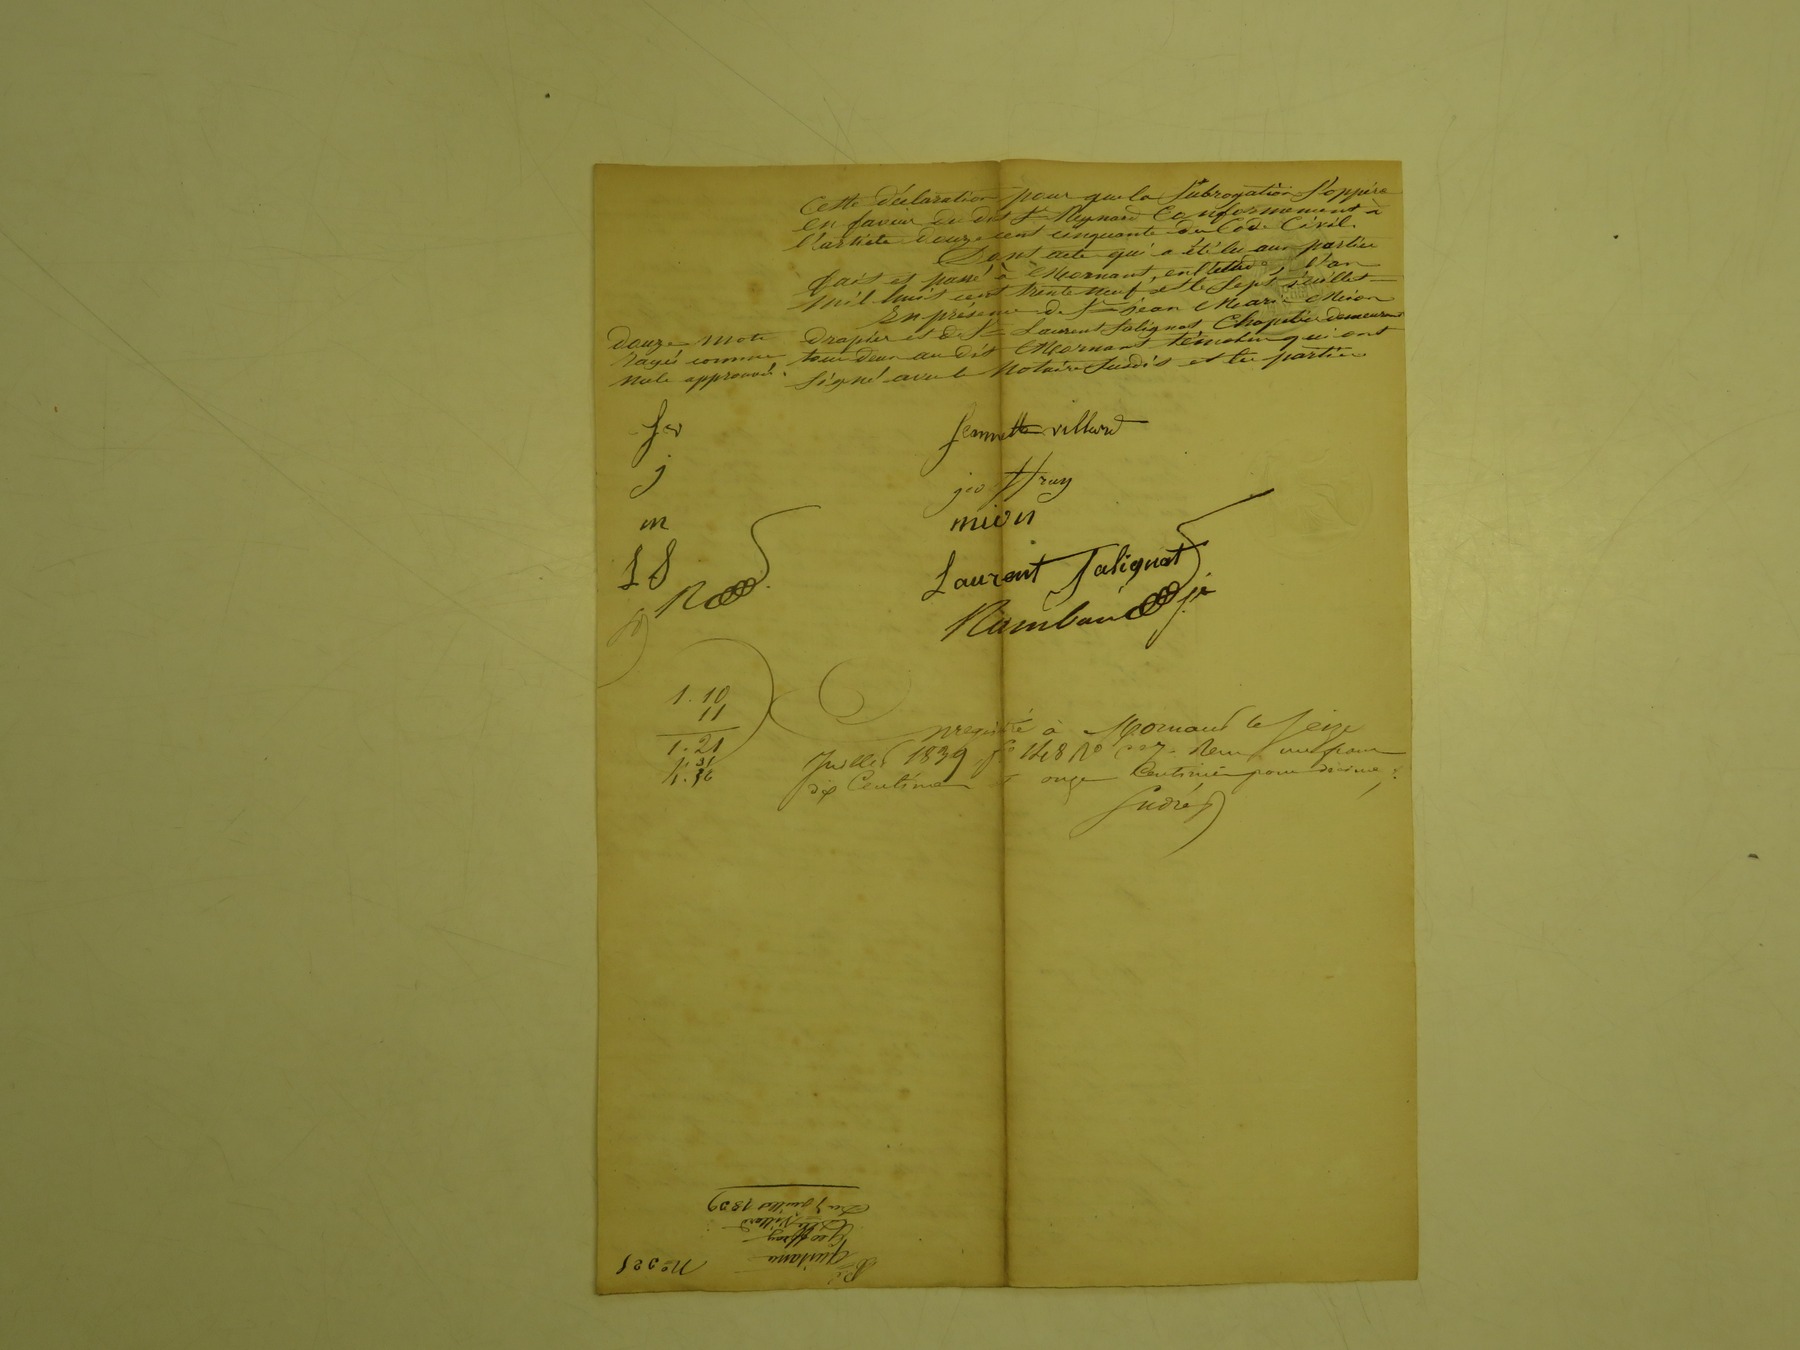 Cette déclaration pour que la Subrogation S'oppère
en faveur du dit Sr Reynard Conformement à
l'article douze cent cinquante du Code Civil.
Dont acte qui a été lu aux parties
fait et passé à Mornant, en l'étude, l'an
mil huit cent trente neuf et le Sept juillet
En présence de Sr jean Marie Mion
drapier et de Sr Laurent Salignat Chapelier demeurant
tous deux au dit Mornant témoins qui ont
Signé avec le Notaire Susdit et les parties
douze mots
rayés comme
nuls approuvés.
jennette villard
j
geoffray
m
mion
L S
Laurent Salignat
Rambaud jne
1. 10
11
1. 21
nregistré à Mornant le Seize
Juillet 1839 fo 148 Ro Reçu un franc
dix Centimes et onze Centimes pour décime
No 321
quittance
Geoffray
Villard
Du 7 juillet 1839